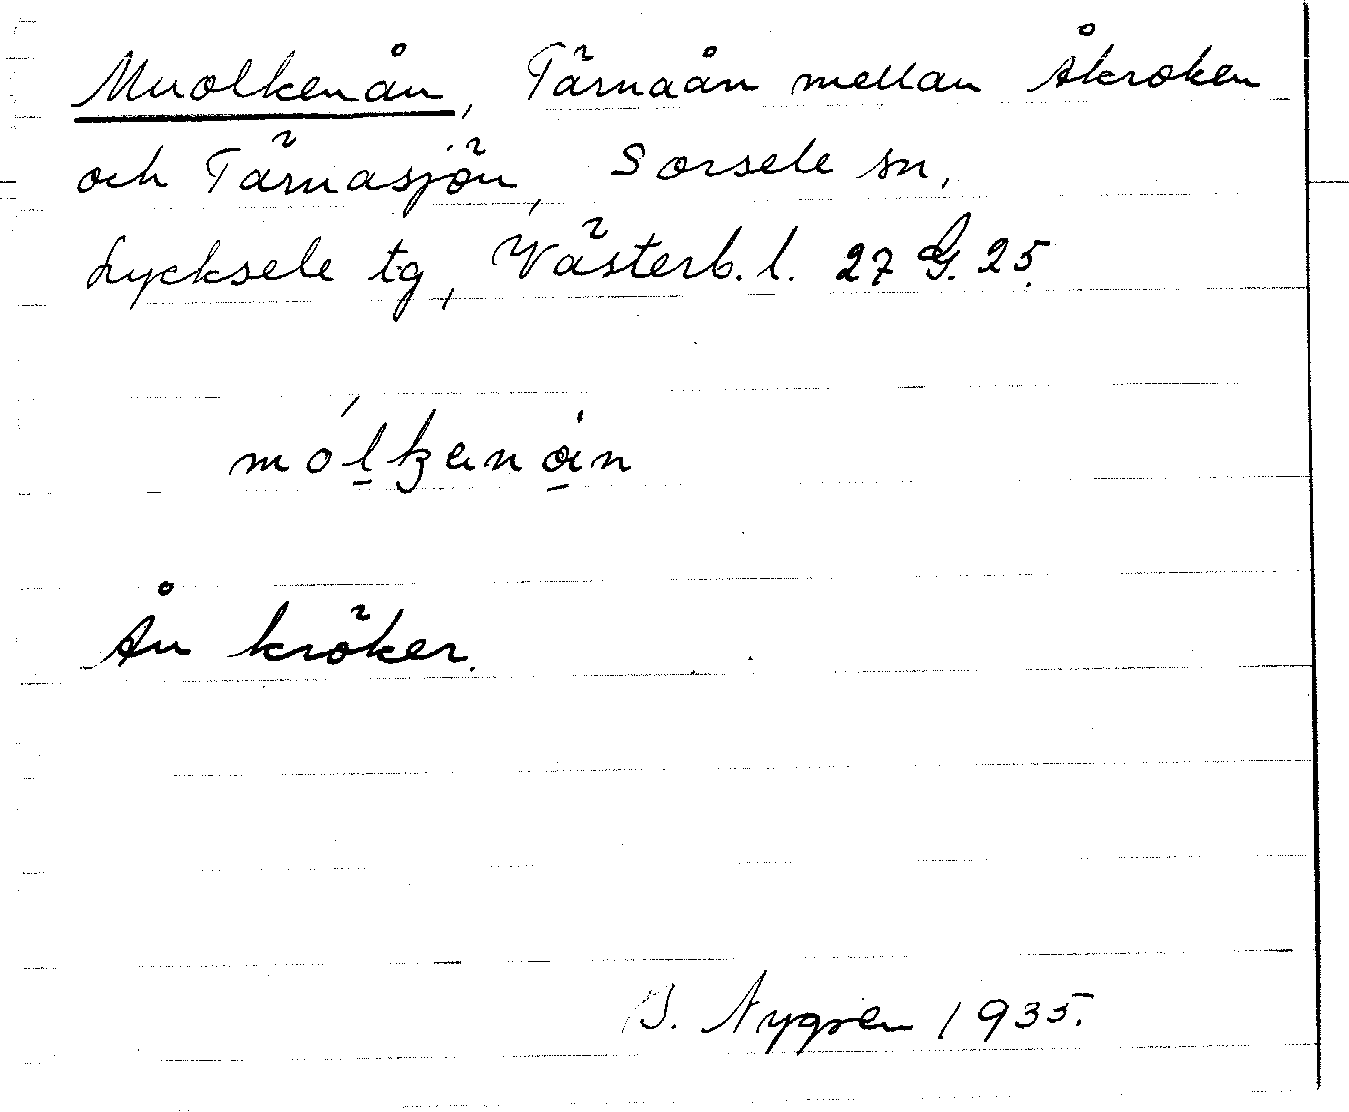 Muolkenån, Tärnaån mellan Åkroken
och Tärnasjön, Sorsele sn,
Lycksele tg, Västerb. l. 27 G. 25.
Ån kröker.
B. Nygren 1935.